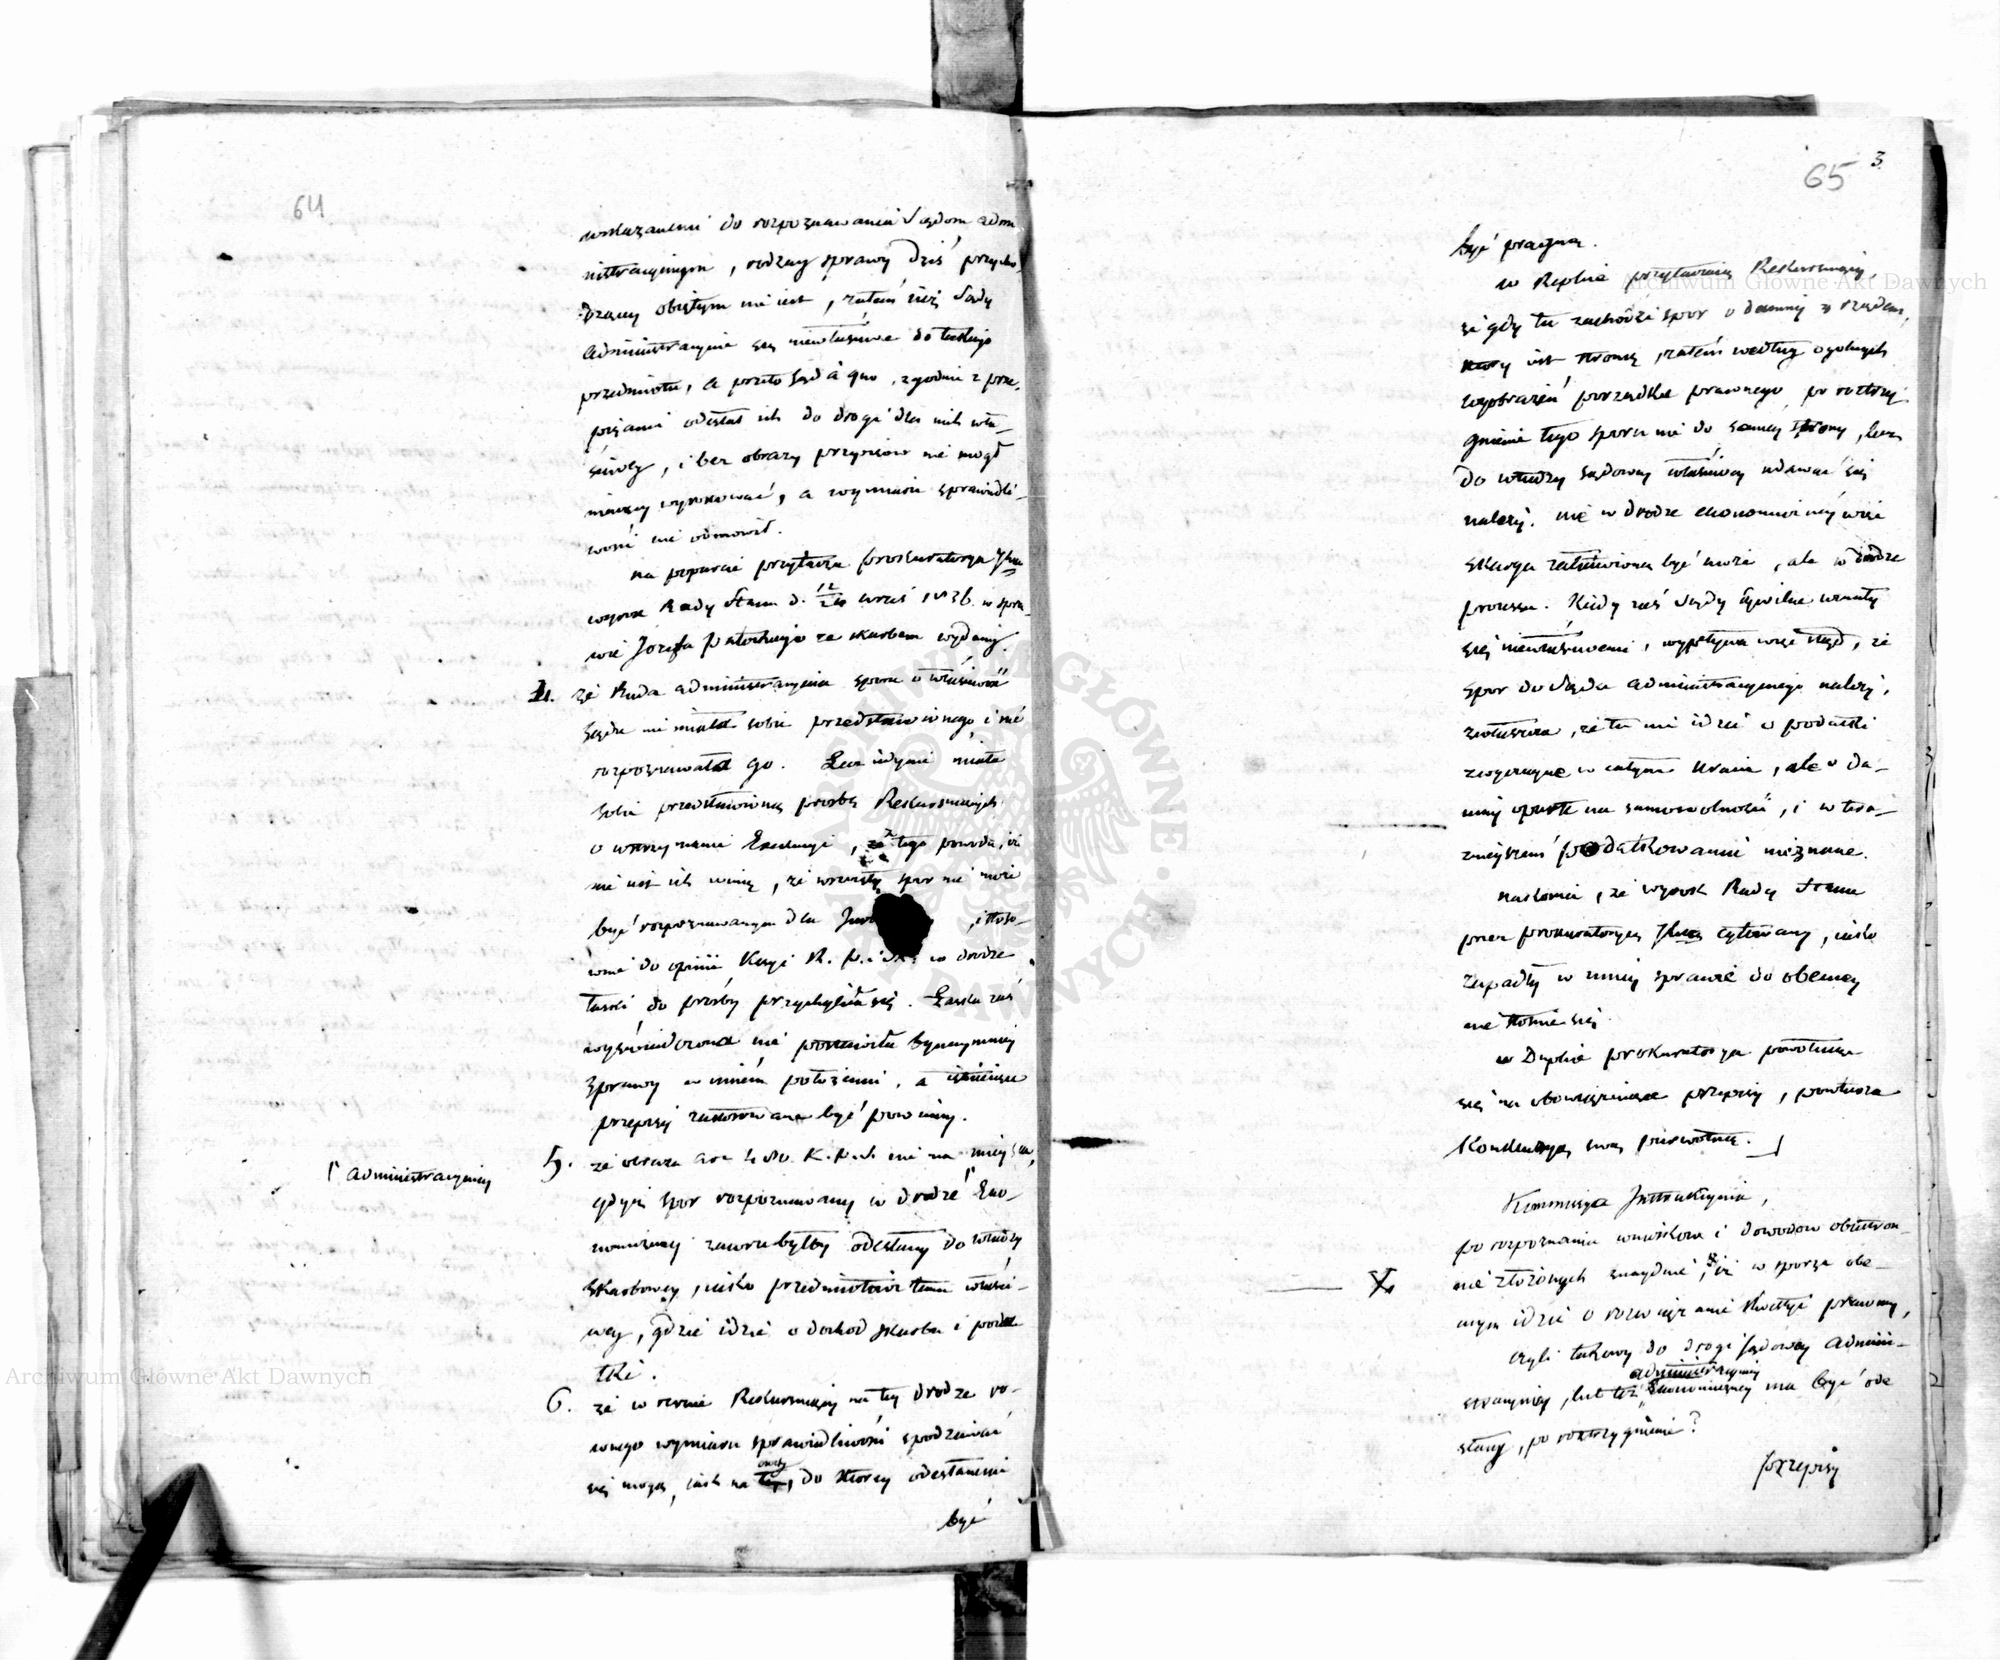 64
wskazanemi do rozpoznawania Sądom admi
nistracyjnym, rodzay sprawy dziś przycho-
dzący obiętym nie iest, zatém iéż Sądy
Administracyine są niewłaściwe do takiego
przedmiotu, a przeto Sąd à quo, zgodnie z prze-
pisami odesłał ich do drogi dla nich wła-
ściwéy, i bez obrazy przepisów nie mógł
inaczey wyrokować, a wymiaru sprawiedli-
wości nie odmówił.
na poparcie przytacza prokuratorya
wyrok Rady Stanu d. 12/24 wrześ 1836. w spra-
wie Józefa Potockiego ze skarbem wydany.
4. że Rada administracyina sporu o właściwość
Sądu nie miała sobie przedstawionego, i nie
rozpoznawała go. Lecz iedynie miała
sobie przedstawioną prośbę Rekursuiących
o wstrzymanie Exekucyi, z tego powodu, iż
nie iest ich winą, że wszczęty spór nie może
być rozpoznawanym dla , i stoso-
wnie do opinii Kmsyi R. P. i Sk. w drodze
łaski do prośby przychyliła się. Łaska zaś
wyświadczona nie postawiła bynaymniey
sprawy w inném położeniu, a istnieiące
przepisy zastosowane być powinny.
5. że obraza art 480. K. P. S. nie ma mieysca,
gdyż spór rozpoznawany w drodze Γ Eko-
Γ administracyiney
nomiczney zawsze byłby odesłany do władzy
skarbowey, iako przedmiotowi temu właści-
wey, gdzie idzie o dochód skarbu i poda
tki.
6. że w rzeczie Rekursuiący na tey drodze ró-
wnego wymiaru sprawiedliwości spodziewać
owéy
się mogą, iak na tey, do którey odesłanemi
być
3
65
być pragną.
w Replice przytaczaią Rekursuiący,
że gdy tu zachodzi spór o daninę z rządem,
który iest stroną, zatém według ogólnych
wyobrażeń porządku prawnego, po roztrzy-
gnienie tego sporu nie do samey strony, lecz
do władzy sądowey właściwey udawać się
należy. nie w drodze ekonomiczney więc
skarga załatwioną być może, ale w drodze
processu. Kiedy zaś Sądy Cywilne uznały
się niewłaściwemi, wypływa więc ztąd, że
spór do Sądu administracyinego należy,
zwłaszcza, że tu nie idzie o podatki
zwyczayne w całym kraiu, ale o da-
niny oparte na samowolności, i w tera-
źnieyszém podatkowaniu nieznane.
nakoniec, że wyrok Rady Stanu
przez prokuratoryą cytowany, iako
zapadły w inney sprawie do obecney
nie stosuie się.
w Duplice prokuratorya powołuiąc
się na obowięzuiące przepisy, powtarza
Konkluzyą swą pierwotną.
Kommissya Instrukcyina,
po rozpoznaniu wniosków i dowodów obustron-
nie złożonych znayduie, iż w sporze obe-
cnym idzie o rozwiązanie kwestyi prawney,
czyli takowy do drogi sądowey admini-
administracyiney
stracyiney, lub też Ekonomiczney ma być ode
słany, po roztrzygnienie?
przepisy
Archiwum Główne Akt Dawnych
Archiwum Główne Akt Dawnych
ARCHIWUM GŁÓWNE AKT DAWNYCH